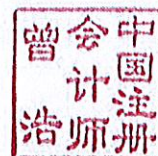 中国注册
会计师
曾浩